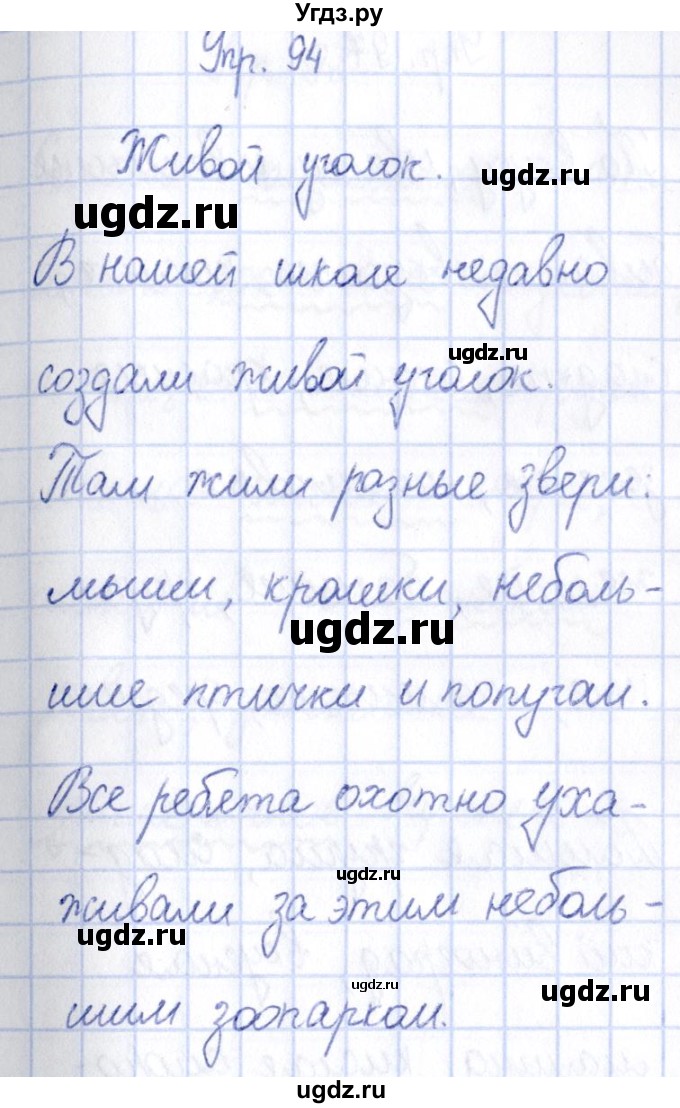 Угдз.ру
Упр. 94
Живой уголок.
ugdz.ru
ugdz.ru
В нашей школе недавно
ugdz.ru
создали живой уголок.
Там жили разные звери:
мыши, крошки, неболь-
ugdz.ru
шие птички и попугаи.
Все ребята охотно уха-
ugdz.ru
живали за этим неболь-
ugdz.ru
ugdz.ru
ugdz.ru
шим зоопарком.
ugdz.ru